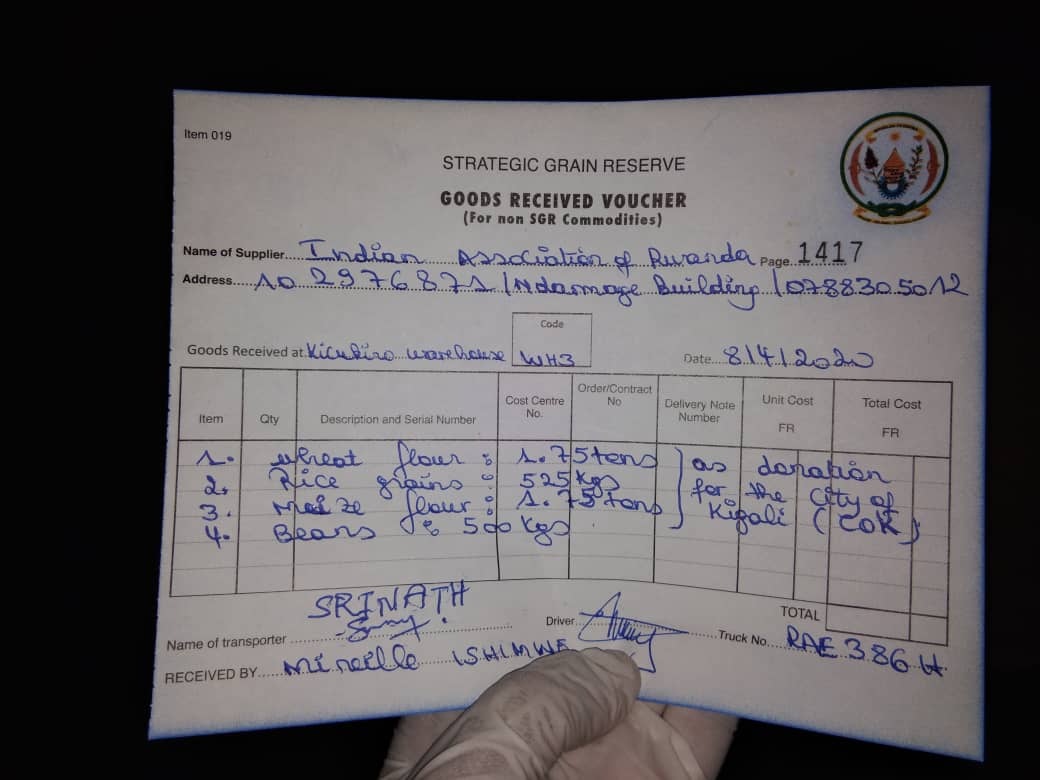 Item 019
STRATEGIC GRAIN RESERVE
GOODS RECEIVED VOUCHER
(For non SGR Commodities)
Name of Supplier.... Indian Association of Rwanda Page 1417
Address.... 10 2976871 / Ndamage Building / 0788305012
Code
Goods Received at Kicukiro warehouse WH3 Date 8/4/2020
Item Qty Description and Serial Number Cost Centre No. Order/Contract No Delivery Note Number Unit Cost FR Total Cost FR
1. wheat flour : 1.75 tons } as donation
2. Rice grains : 525 kgs for the City of
3. Maize flour : 1.75 tons Kigali (COK)
4. Beans : 500 Kgs
SRINATH
TOTAL
Name of transporter Driver Truck No. RAE 386 H
RECEIVED BY Mireille ISHIMWE